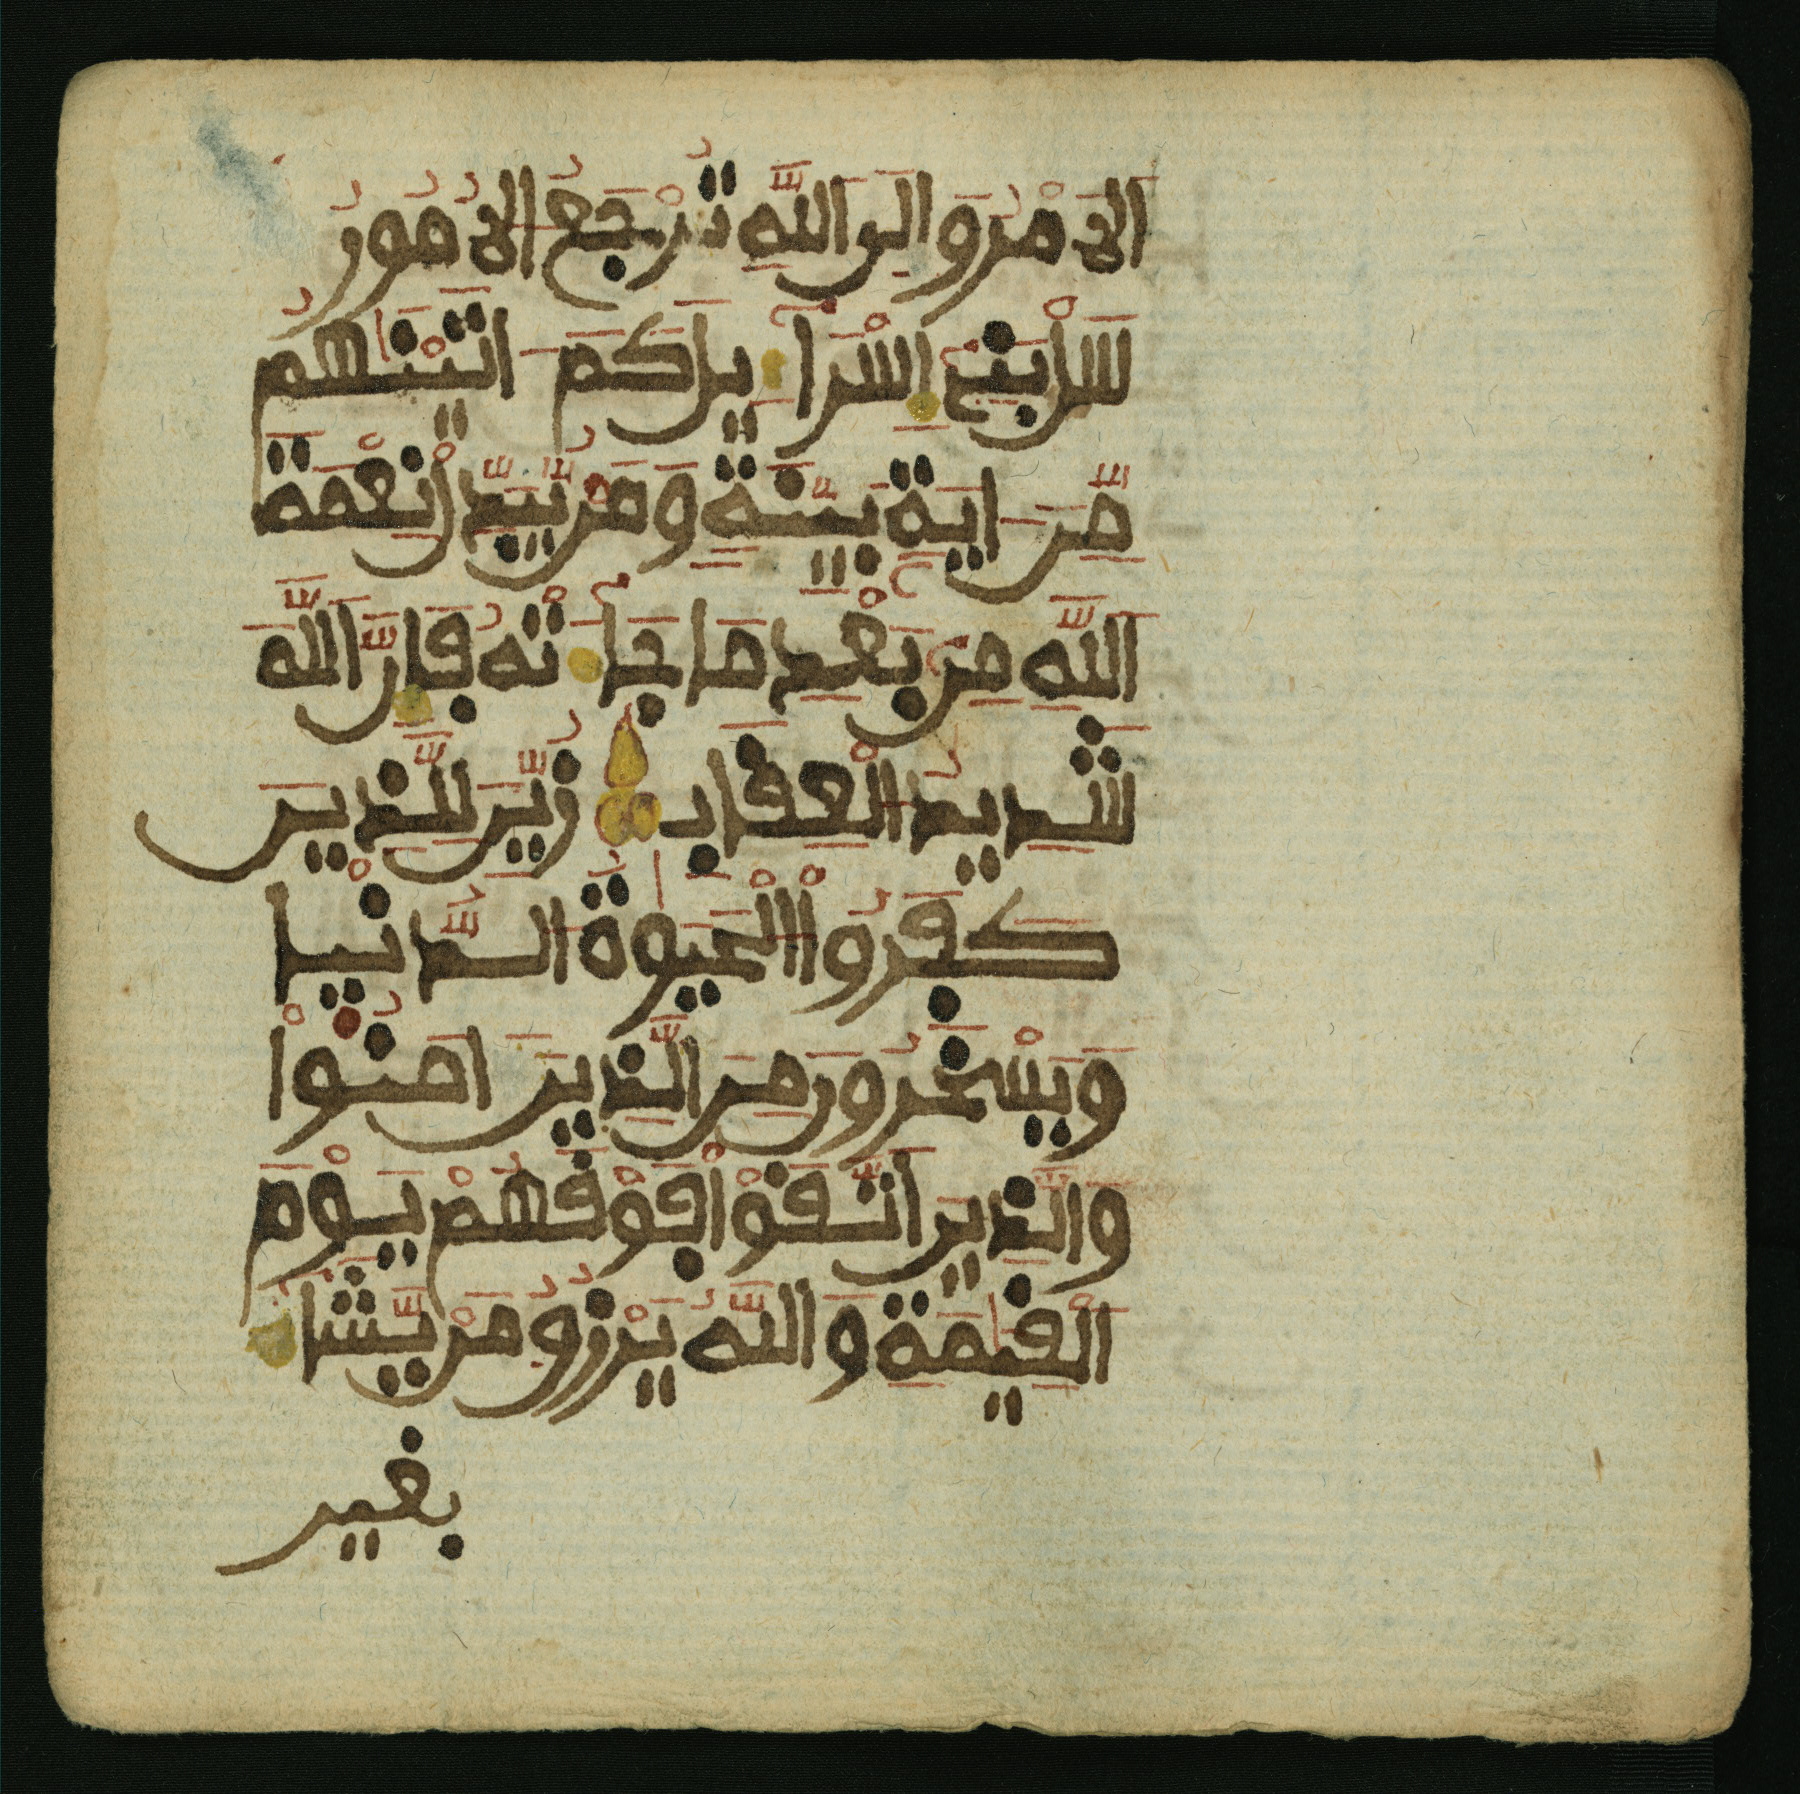 الَامْرُ وَإِلَى اللَّهِ تُرْجَعُ الُامُورُ
سَلْ بَنِے إِسْرَآءِيلَ كَمَ اتَيْنَٰهُم
مِّنَ ايَةٍ بَيِّنَةٍ وَمَنْ يُّبَدِّلْ نِعْمَةَ
اللَّهِ مِنۢ بَعْدِ مَا جَآءَتْهُ فَإِنَّ اللَّهَ
شَدِيدُ الْعِقَابِ زُيِّنَ لِلَّذِينَ
كَفَرُواْ الْحَيَوٰةُ الدُّنْيَا
وَيَسْخَرُونَ مِنَ الَّذِينَ ءَامَنُواْ
وَالَّذِينَ اتَّقَوْاْ فَوْقَهُمْ يَوْمَ
الْقِيَٰمَةِ وَاللَّهُ يَرْزُقُ مَنْ يَّشَآءُ
بغير